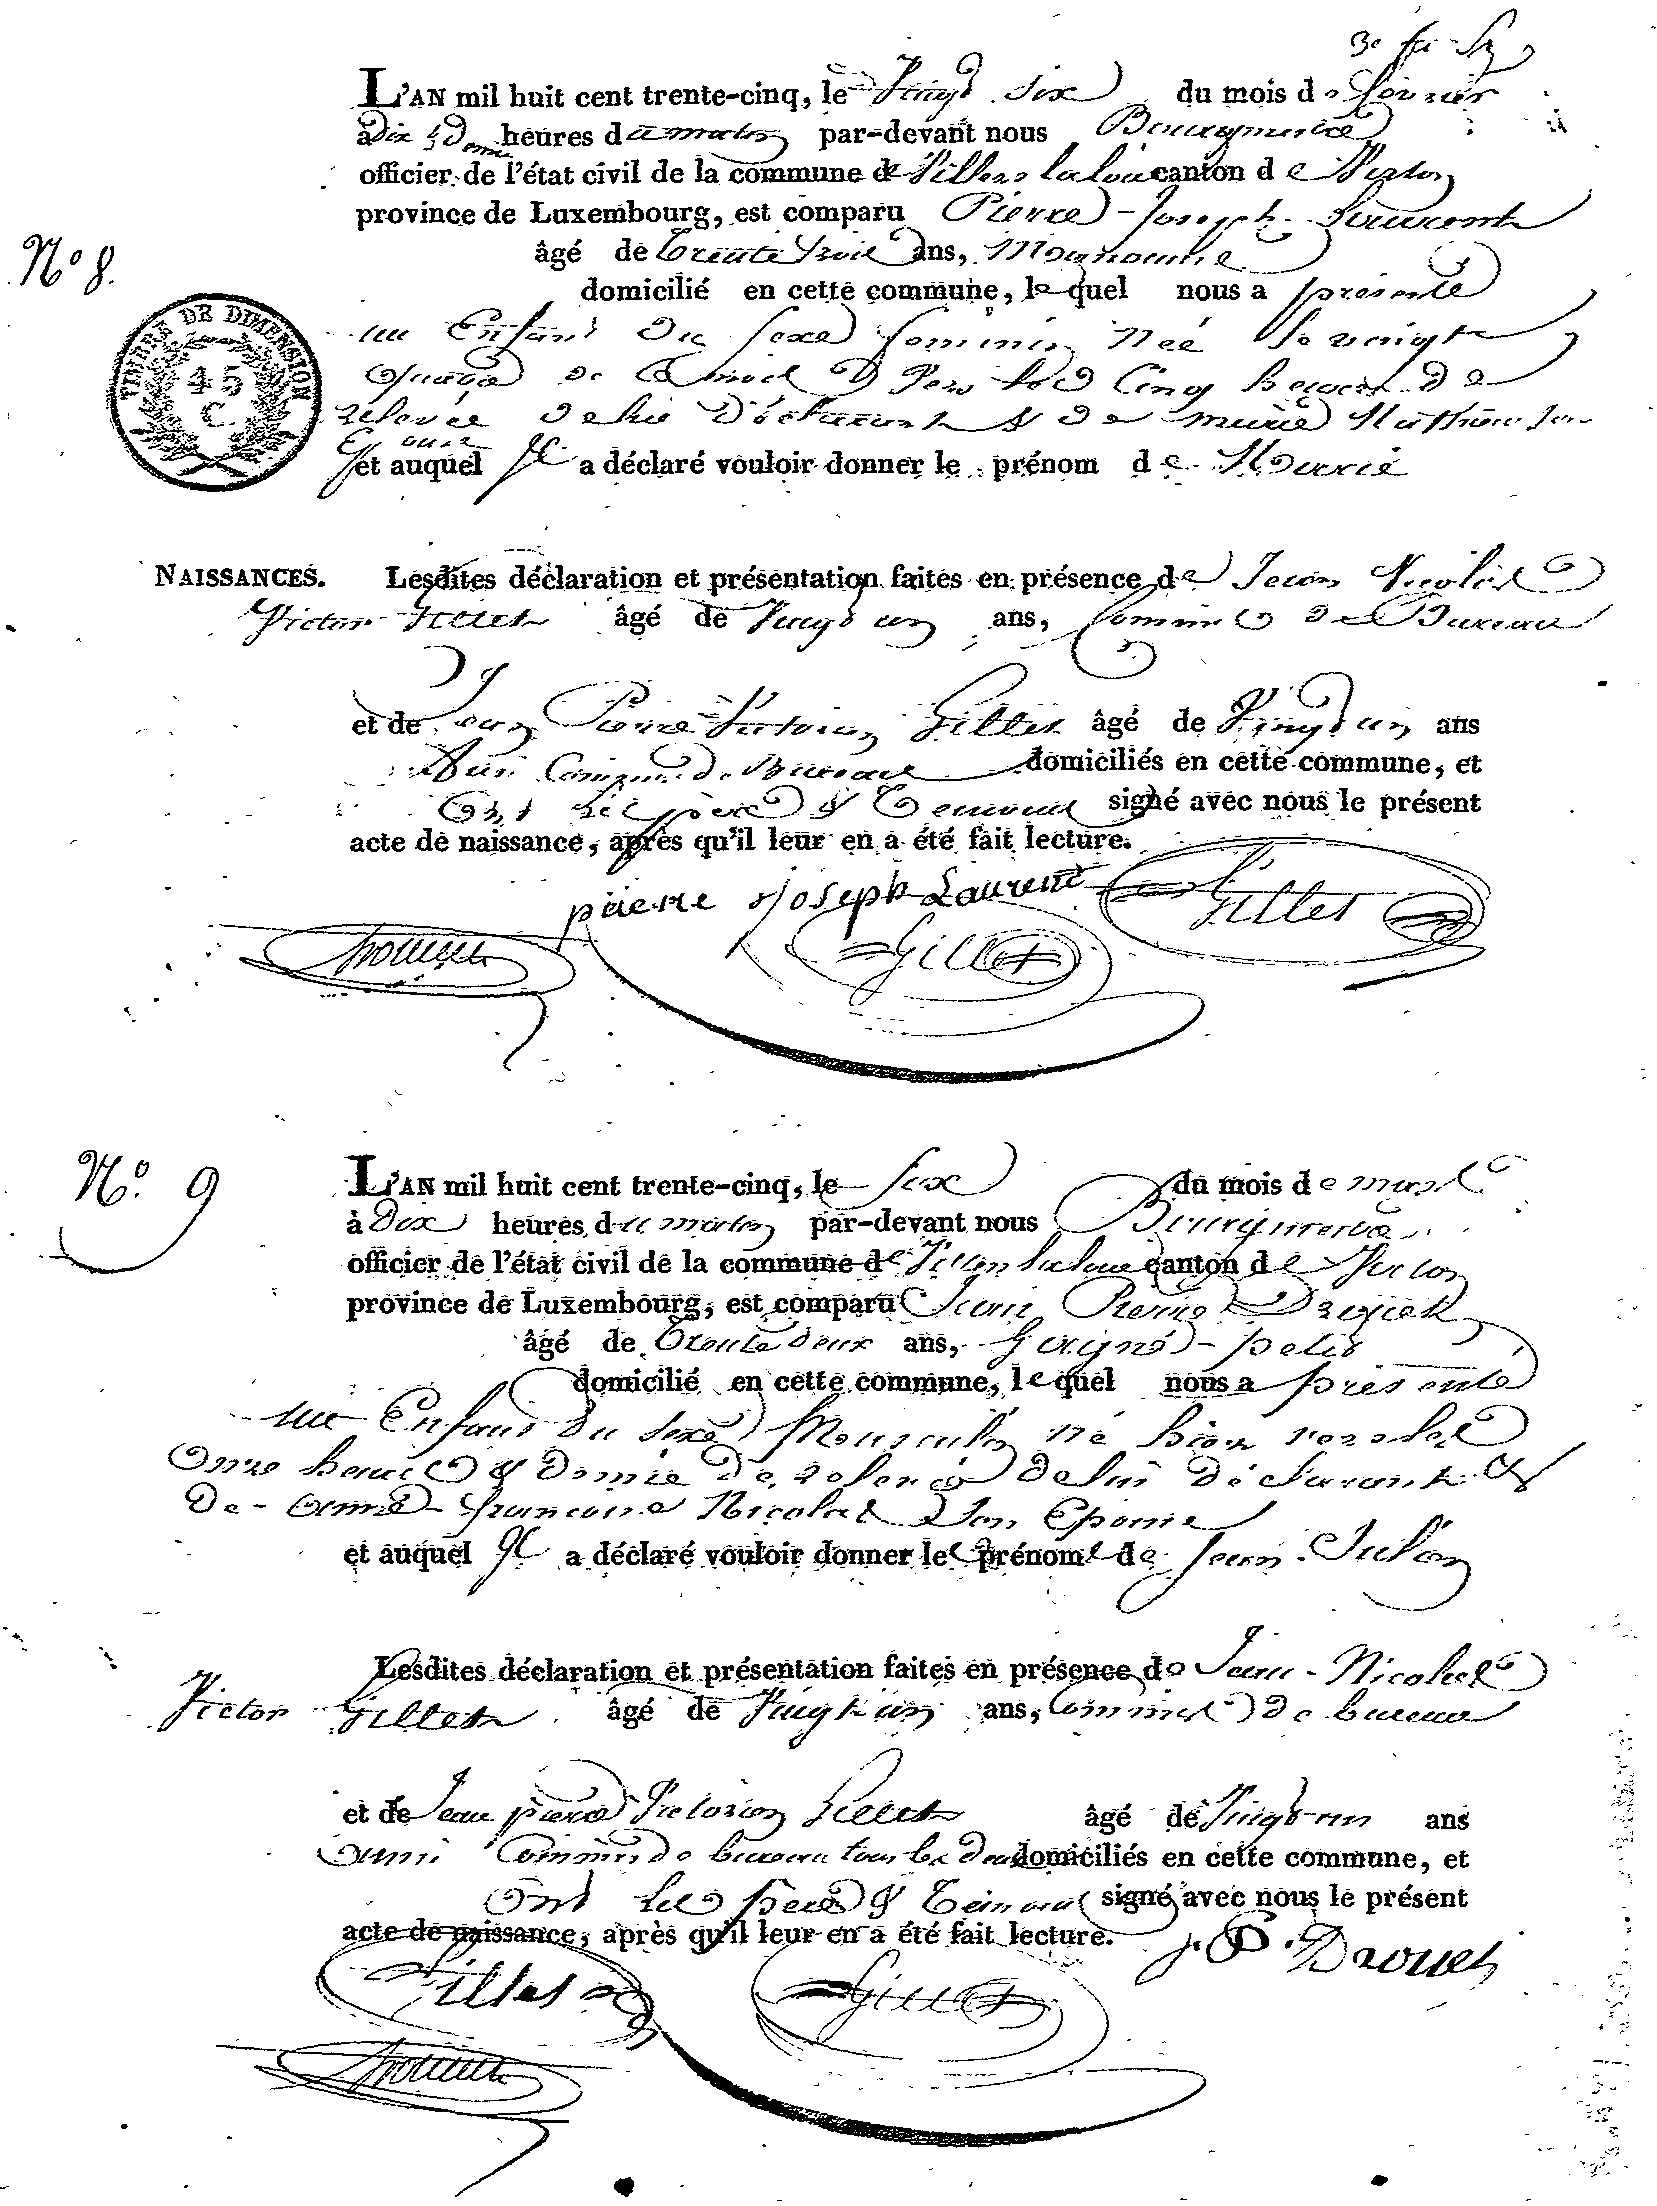 3e
L'AN mil huit cent trente-cinq, le Vingt Six du mois de fevrier
à Dix & Demie heures du matin par-devant nous Bourgmestre
officier de l'état civil de la commune de Villers la loue canton de Virton
province de Luxembourg, est comparu Pierre-Joseph Laurent
N° 8.
âgé de Trente trois ans, Manoeuvre
domicilié en cette commune, lequel nous a présenté
un Enfant du sexe feminin née le vingt
quatre de Ce mois vers les Cinq heures de
TIMBRE DE DIMENSION
45
C.
relevée de lui déclarant & de marie
Epouse
et auquel Il a déclaré vouloir donner le prénom de Marie
NAISSANCES. Lesdites déclaration et présentation faites en présence de Jean Nicolas
Victor Gillet âgé de Vingt un ans, Commis de Bureau
et de Jean Pierre Victorien Gillet âgé de Vingt un ans
Aussi Commis de Bureau domiciliés en cette commune, et
Ont les père & Temoins signé avec nous le présent
acte de naissance, après qu'il leur en a été fait lecture.
pierre Joseph Laurent Gillet
Gillet
N° 9
L'AN mil huit cent trente-cinq, le Six du mois de mars
à Dix heures du matin par-devant nous Bourgmestre
officier de l'état civil de la commune de Villers la loue canton de Virton
province de Luxembourg, est comparu Jean Pierre Drouet
âgé de Trente deux ans, Gagne-petit
domicilié en cette commune, lequel nous a présenté
un Enfant du sexe Masculin né hier vers les
Onze heures & demie de relevée de lui déclarant &
de anne françoise Nicolas Son Epouse
et auquel Il a déclaré vouloir donner les prénoms de Jean Julien
Lesdites déclaration et présentation faites en présence de Jean-Nicolas
Victor Gillet âgé de Vingt un ans, Commis de bureau
et de Jean pierre Victorien Gillet âgé de Vingt un ans
aussi Commis de bureau tous les deux domiciliés en cette commune, et
Ont les père & Temoins signé avec nous le présent
acte de naissance, après qu'il leur en a été fait lecture.
J. P. Drouet
Gillet Gillet